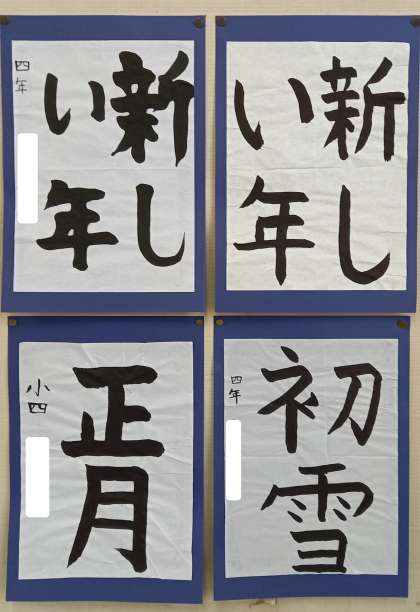 新し
い年
新し
い年
四年
初雪
四年
正月
小四